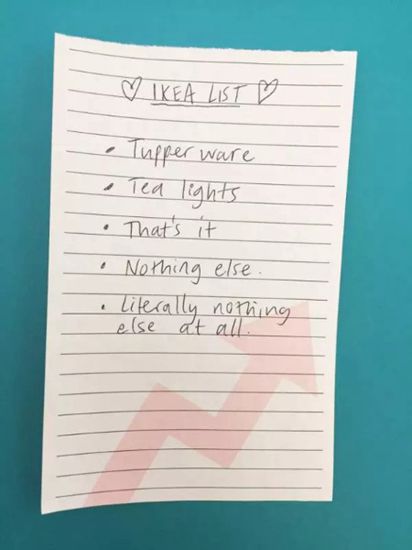 ♡ IKEA LIST ♡
• Tupperware
• Tea lights
• That's it
• Nothing else.
• Literally nothing
else at all.